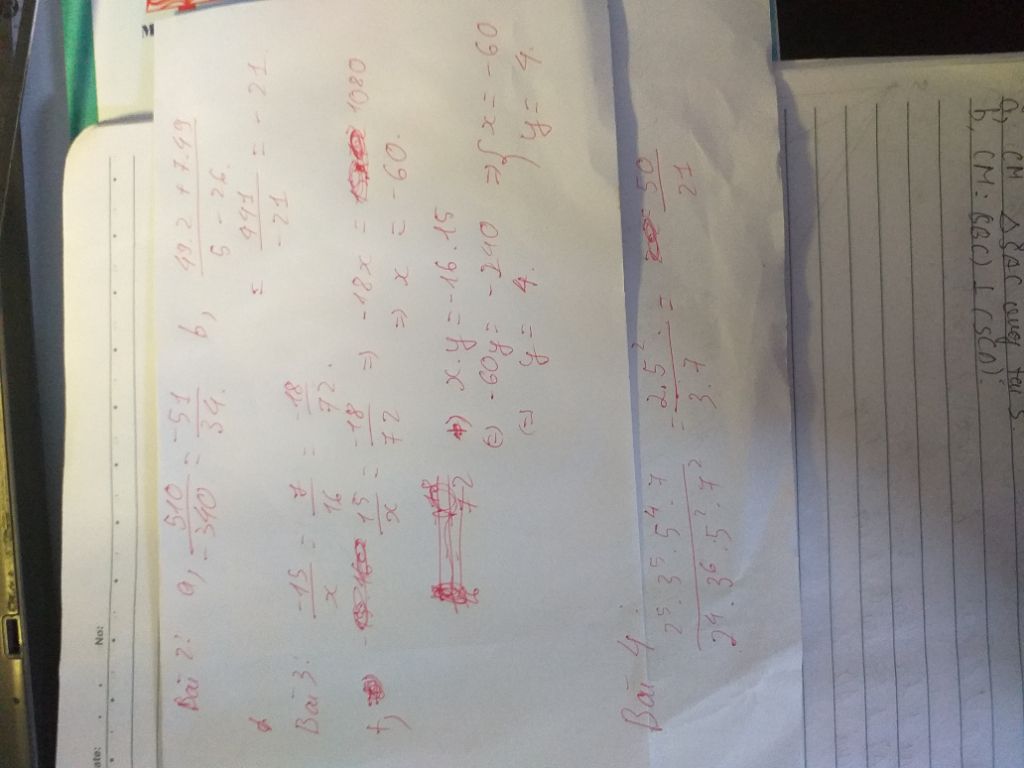 Bài 2: a, 510/-340 = -51/34. b, 49.2 + 7.49/5 - 26
= 441/-21 = -21
Bài 3: -15/x = y/16 = -18/72.
+) 15/x = -18/72 => -18x = 1080
=> x = -60.
+) x.y = -16.15
(=) -60y = -240 => { x = -60
(=) y = 4. y = 4.
Bài 4
2^5.3^5.5^4.7/2^4.3^6.5^2.7^2 = 2.5^2/3.7 = 50/21
CM Δ SAC vuông tại S
b, CM: (SAC) ⊥ (SCD)
No: